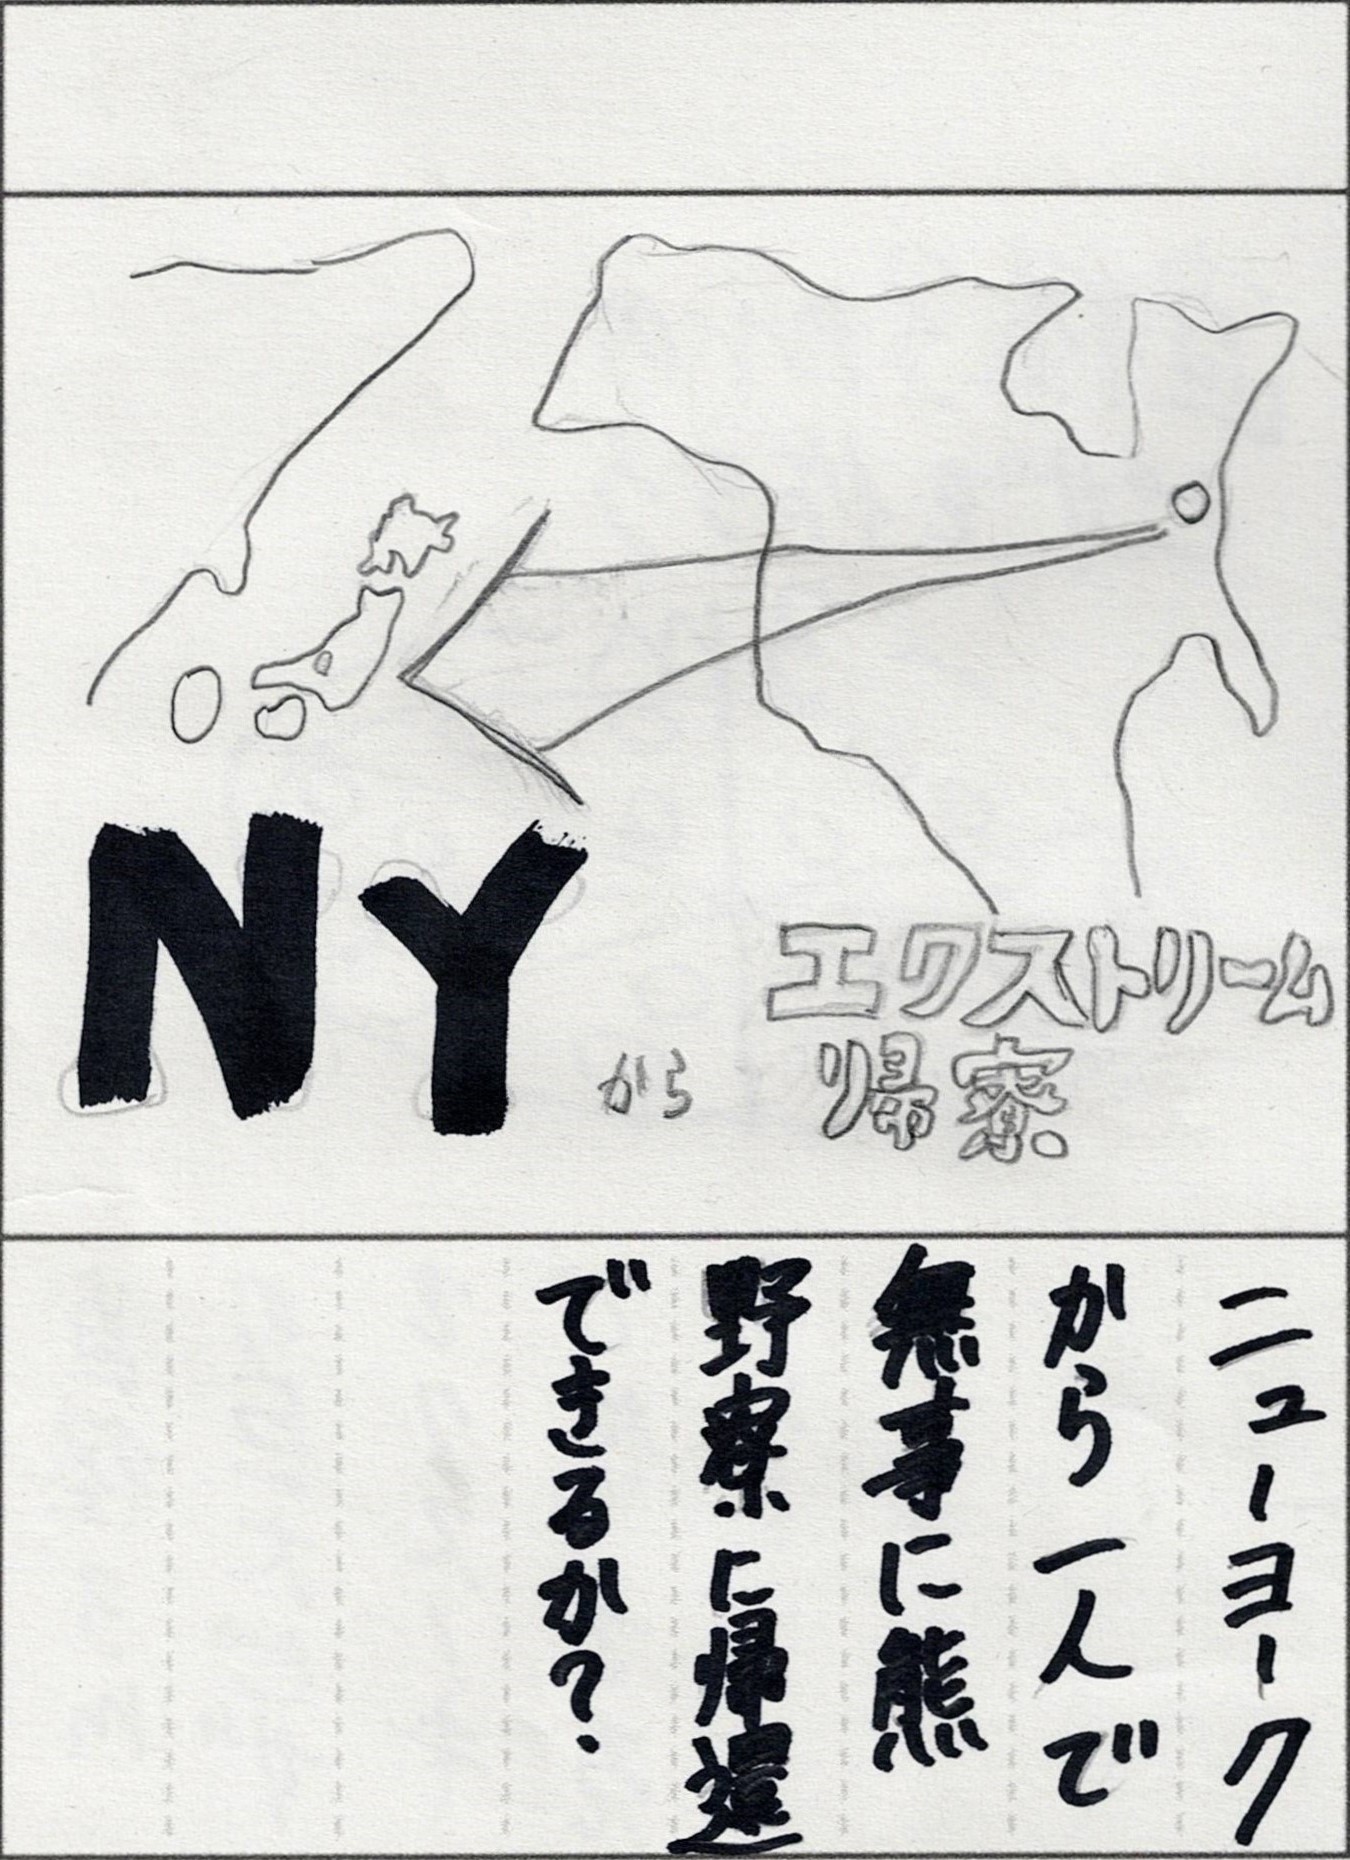 NYから
エクストリーム
帰寮
ニューヨーク
から一人で
無事に熊
野寮に帰還
できるか?